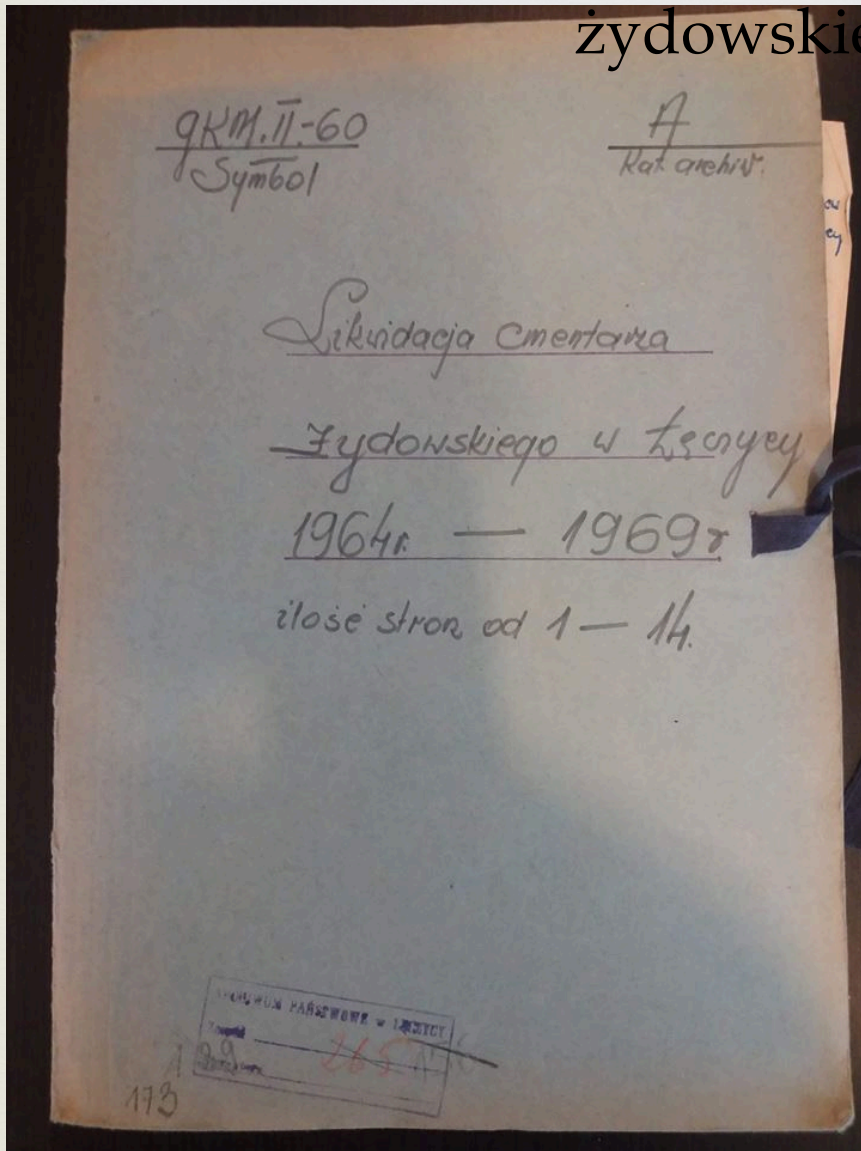 żydowskie
GKM.II.-60
Symbol
A
Kat. archiw.
Likwidacja cmentarza
Żydowskiego w Łęczycy
1964r. — 1969r
ilość stron od 1 — 14.
ARCHIWUM PAŃSTWOWE w ŁĘCZYCY
Zespół
265
173